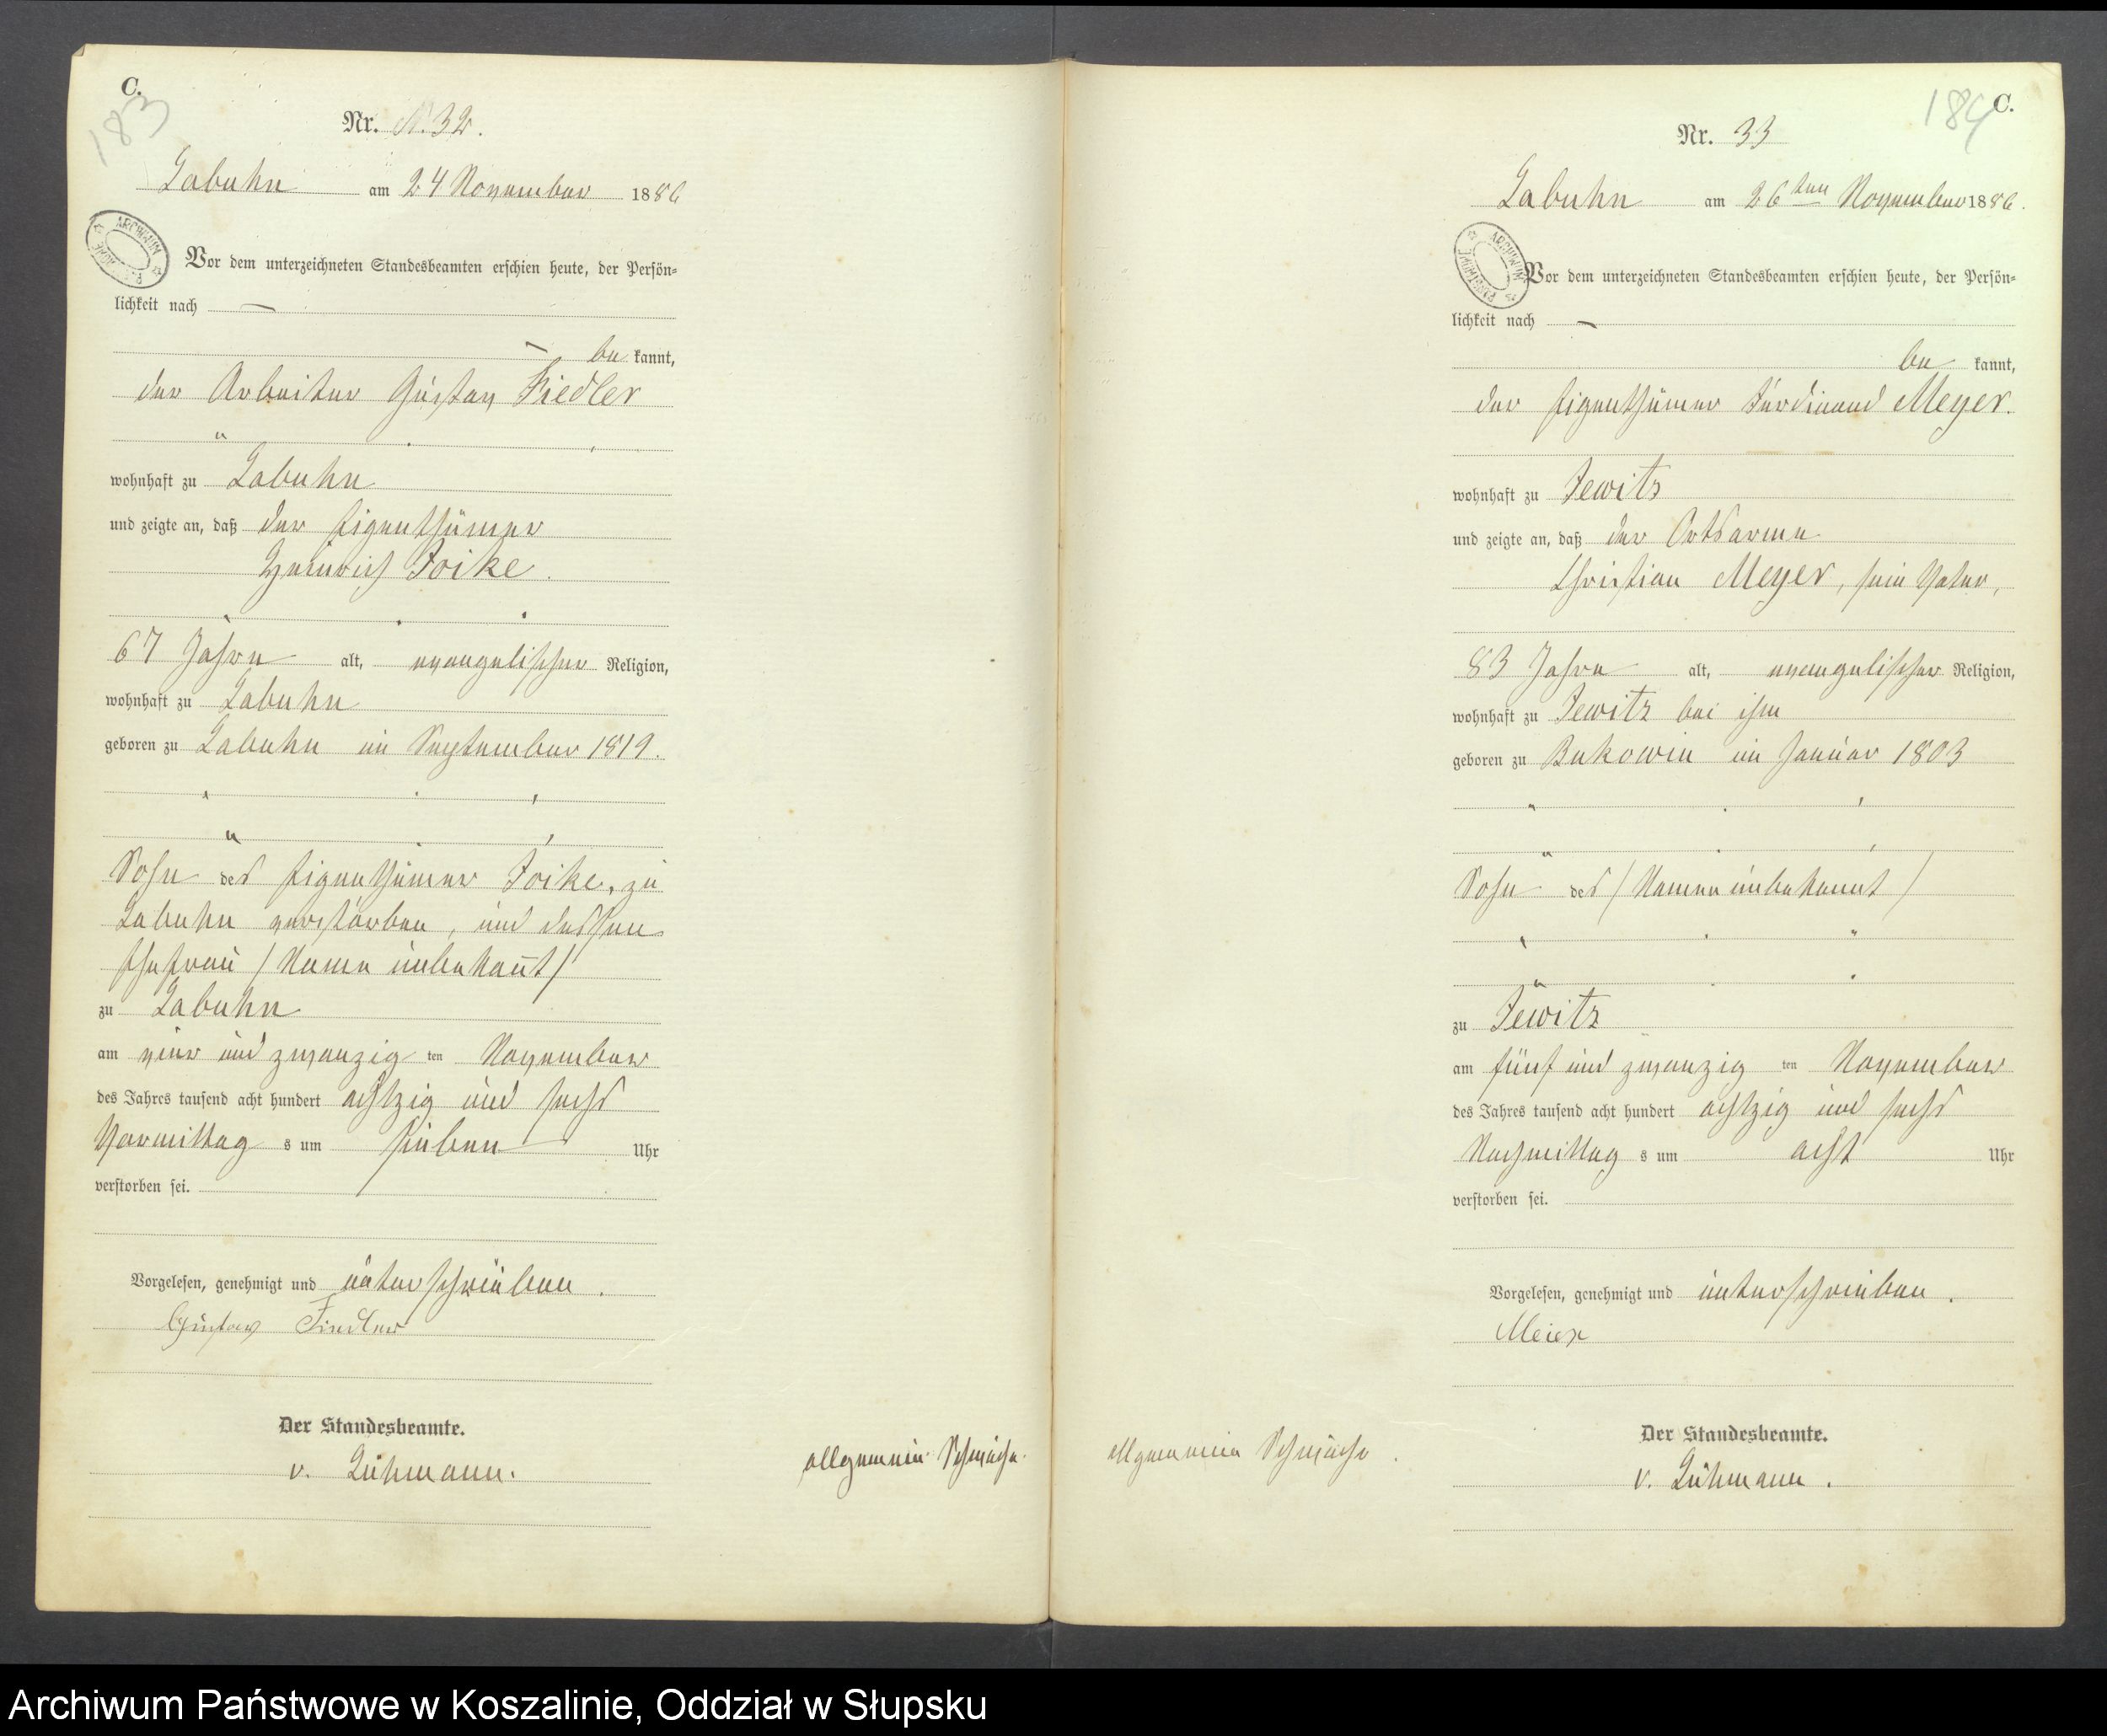 C.
183
Nr. 32.
Labuhn am 24 November 1886
Vor dem unterzeichneten Standesbeamten erschien heute, der Persön-
lichkeit nach —
— be kannt,
der Arbeiter Gustav Fiedler
wohnhaft zu Labuhn
und zeigte an, daß der Eigenthümer
Heinrich Joike.
67 Jahre alt, evangelischer Religion,
wohnhaft zu Labuhn
geboren zu Labuhn im September 1819.
Sohn des Eigenthümer Joike, zu
Labuhn verstorben, und dessen
Ehefrau / Name unbekannt /
zu Labuhn
am vier und zwanzig ten November
des Jahres tausend acht hundert achtzig und sechs
Vormittag s um sieben Uhr
verstorben sei.
Vorgelesen, genehmigt und unterschrieben.
Gustav Fiedler
Der Standesbeamte.
v. Lühmann.
allgemein Schwäche.
184 C.
Nr. 33
Labuhn am 26ten November 1886.
Vor dem unterzeichneten Standesbeamten erschien heute, der Persön-
lichkeit nach —
be kannt,
der Eigenthümer Ferdinand Meyer.
wohnhaft zu Jewitz
und zeigte an, daß der Ortsarme
Christian Meyer, sein Vater,
83 Jahre alt, evangelischer Religion,
wohnhaft zu Jewitz bei ihm
geboren zu Bukowin im Januar 1803
Sohn des / Namen unbekannt /
zu Jewitz
am fünf und zwanzig ten November
des Jahres tausend acht hundert achtzig und sechs
Nachmittag s um acht Uhr
verstorben sei.
Vorgelesen, genehmigt und unterschrieben.
Meier
Der Standesbeamte.
v. Lühmann.
allgemeine Schwäche.
Archiwum Państwowe w Koszalinie, Oddział w Słupsku